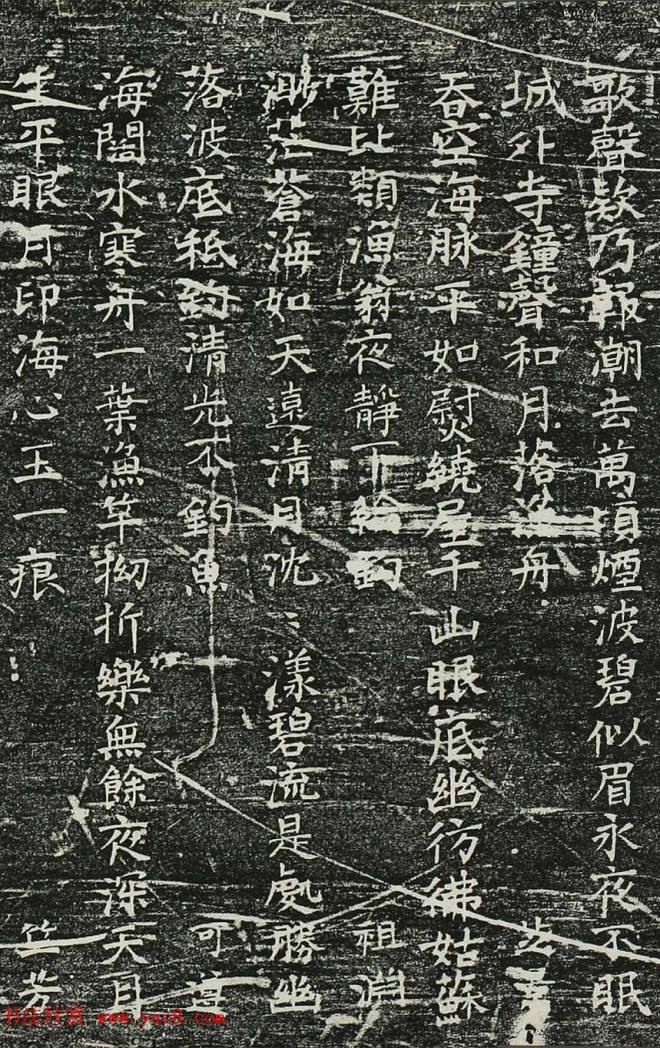 歌聲欸乃報潮去萬頃煙波碧似眉永夜不眠
城外寺鐘聲和月落漁舟
吞空海脉平如熨繞屋千山眼底幽彷彿姑蘇
難比類漁翁夜靜下輪鈎 祖淵
渺茫蒼海如天遠清月沈〻漾碧流是處勝幽
落波底秪釣清光不釣魚 可
海闊水寒舟一葉漁竿拗折樂無餘夜深天月
生平眼月印海心玉一痕 竺芳
书法欣赏 www.yac8.com